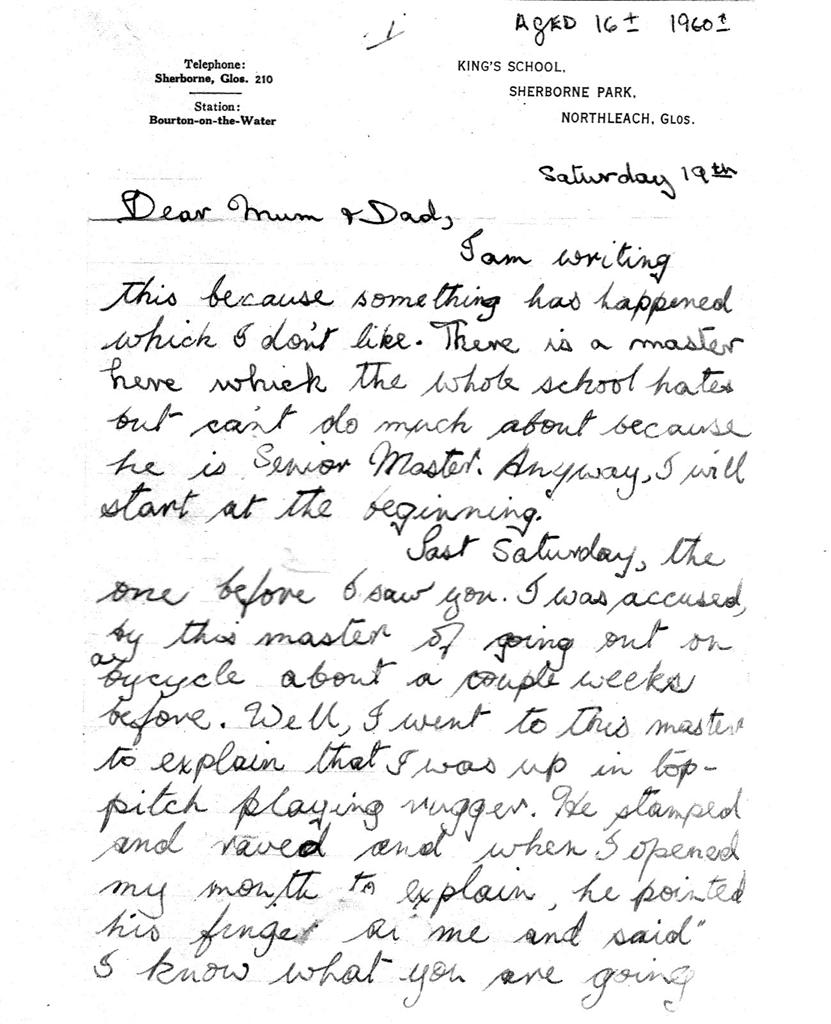 AGED 16± 1960±
Telephone:
Sherborne, Glos. 210
Station:
Bourton-on-the-Water
KING'S SCHOOL,
SHERBORNE PARK,
NORTHLEACH, GLOS.
Saturday 19th
Dear Mum & Dad,
I am writing
this because something has happened
which I don't like. There is a master
here which the whole school hates
but can't do much about because
he is Senior Master. Anyway, I will
start at the beginning.
Last Saturday, the
one before I saw you. I was accused,
by this master of going out on
a bycycle about a couple weeks
before. Well, I went to this master
to explain that I was up in top-
pitch playing rugger. He stamped
and raved and when I opened
my mouth to explain, he pointed
his finger at me and said "
I know what you are going